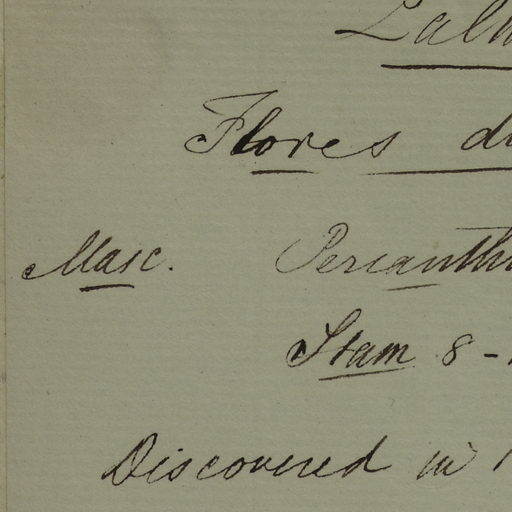 Flores
Masc. Perianth
Stam 8 -
Discovered in